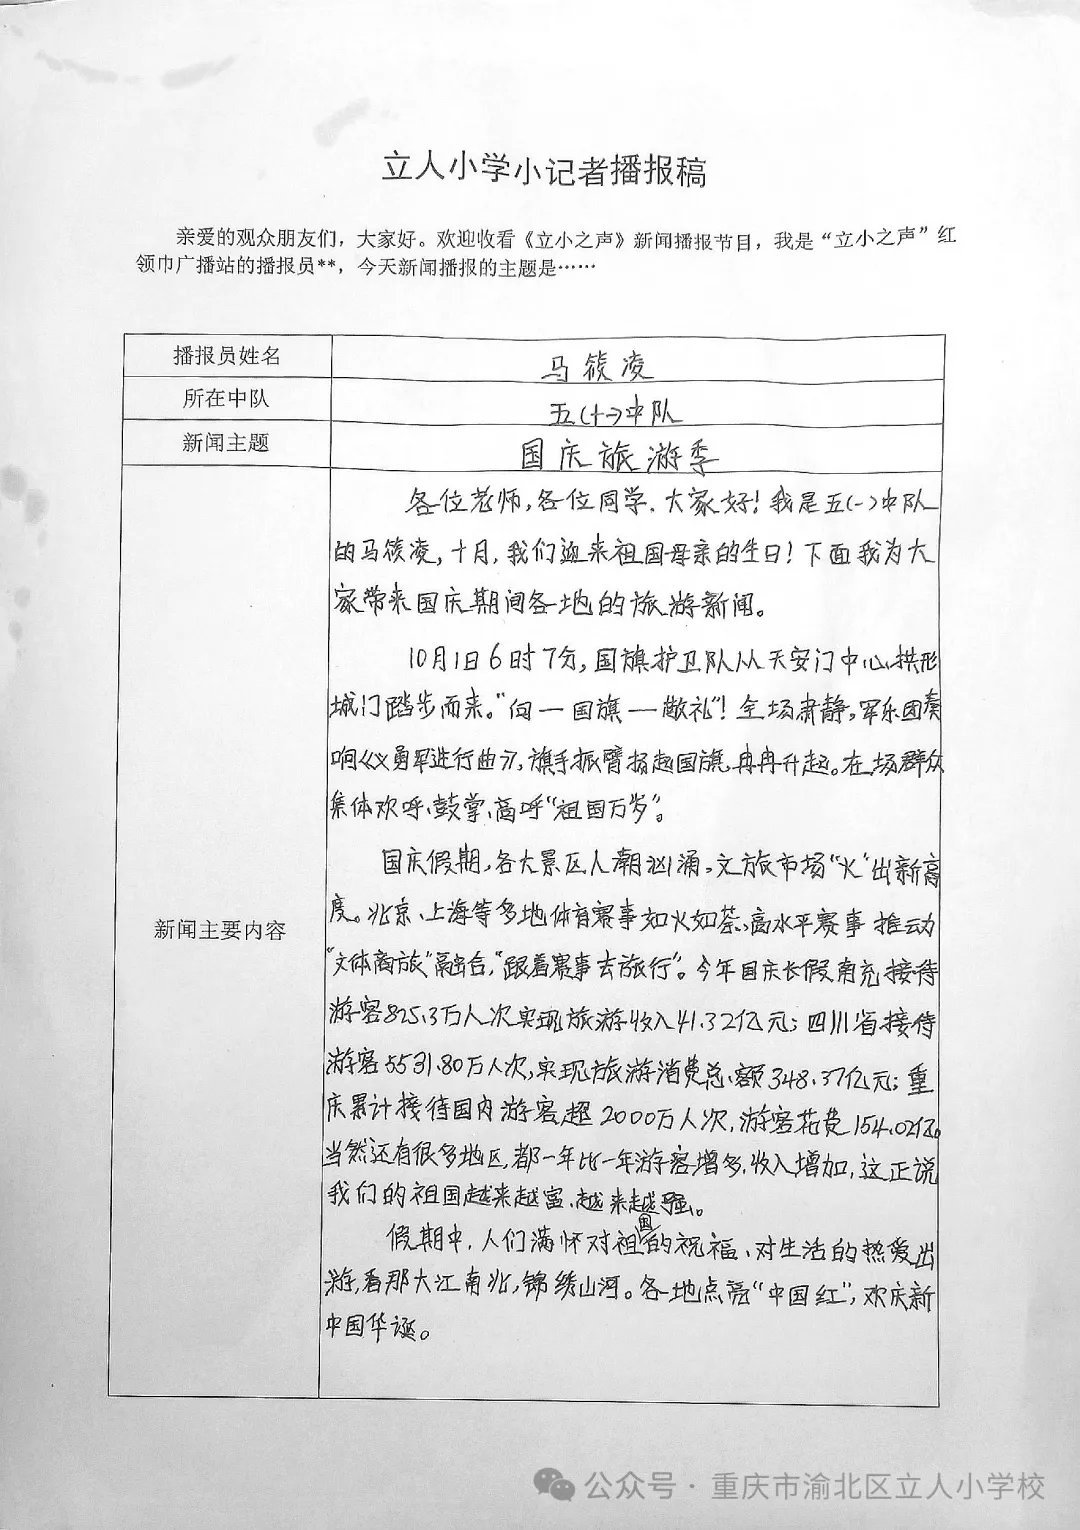 立人小学小记者播报稿
亲爱的观众朋友们，大家好。欢迎收看《立小之声》新闻播报节目，我是“立小之声”红
领巾广播站的播报员**，今天新闻播报的主题是……
播报员姓名 马筱凌
所在中队 五(十一)中队
新闻主题 国庆旅游季
新闻主要内容
各位老师,各位同学.大家好!我是五(一)中队
的马筱凌,十月,我们迎来祖国母亲的生日!下面我为大
家带来国庆期间各地的旅游新闻。
10月1日6时7分,国旗护卫队从天安门中心拱形
城门踏步而来。"向一国旗一敬礼"!全场肃静,军乐团奏
响《义勇军进行曲》,旗手振臂扬起国旗,冉冉升起。在场群众
集体欢呼、鼓掌、高呼"祖国万岁"。
国庆假期,各大景区人潮汹涌,文旅市场"火"出新高
度。北京、上海等多地体育赛事如火如荼、高水平赛事推动
"文体商旅"融合,"跟着赛事去旅行"。今年国庆长假南充接待
游客825.3万人次实现旅游收入41.32亿元;四川省接待
游客5531.80万人次,实现旅游消费总额348.37亿元;重
庆累计接待国内游客超2000万人次,游客花费154.02亿。
当然还有很多地区,都一年比一年游客增多,收入增加,这正说
我们的祖国越来越富、越来越强。
假期中,人们满怀对祖国的祝福、对生活的热爱出
游,看那大江南北,锦绣山河。各地点亮"中国红",欢庆新
中国华诞。
公众号·重庆市渝北区立人小学校